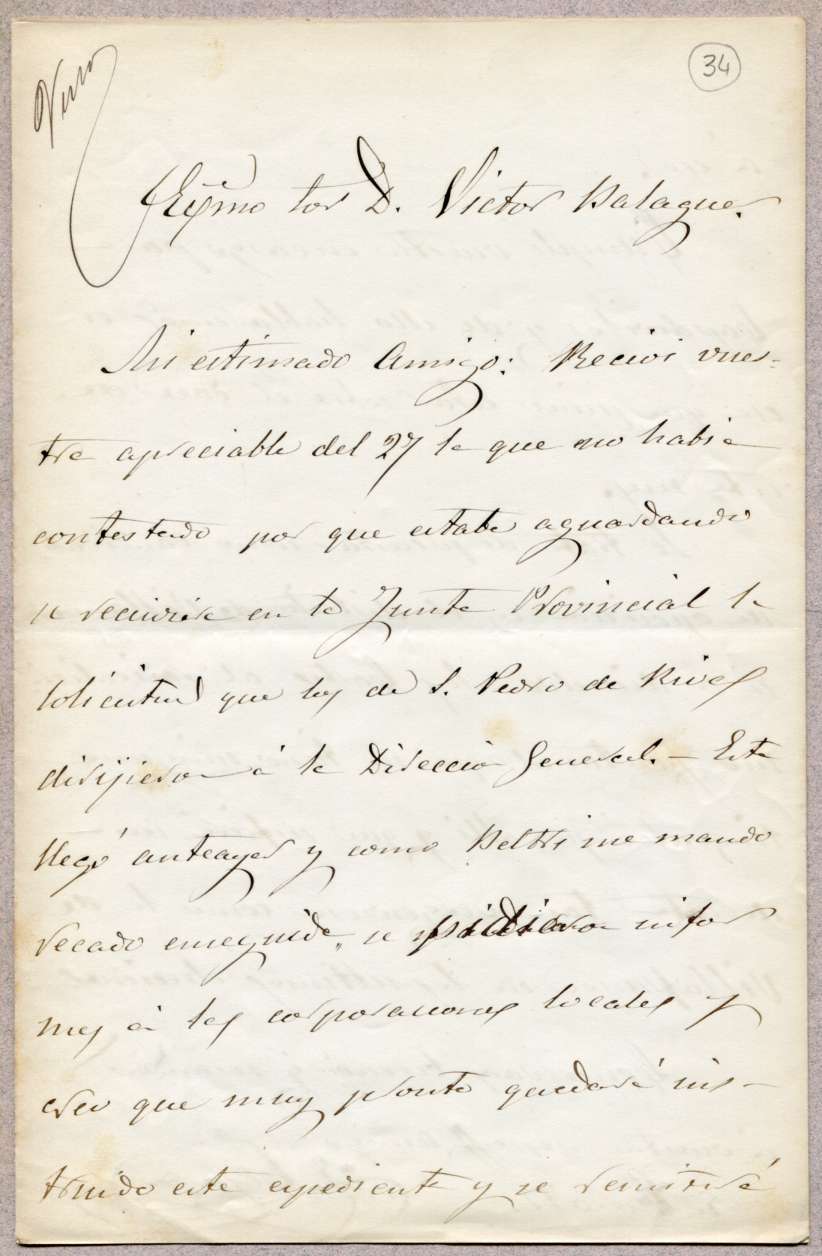 34
Exmo Sor D. Victor Balaguer.
Mi estimado Amigo: Reciví vues-
tra apreciable del 27 la que no habia
contestado por que estaba aguardando
se reciviese en la Junta Provincial la
solicitud que los de S. Pedro de Rivas
dirijieron á la Direccion General. — Esta
llegó anteayer y como Beltri me mandó
recado enseguida, se pidieron infor
mes á las corporaciones locales y
creo que muy pronto quedará ins-
truido este espediente y se remitirá